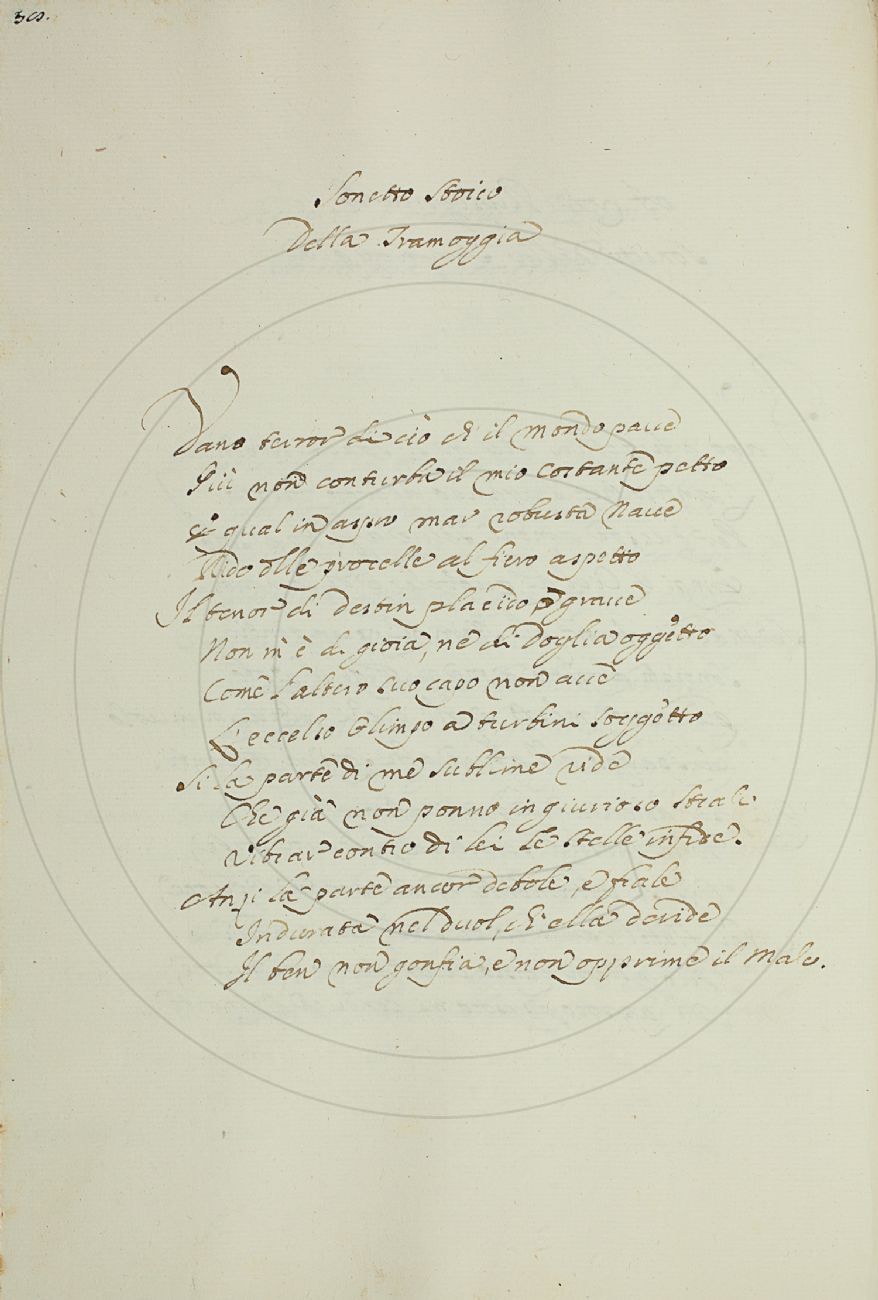 Sonetto Stoico
Della Tramoggia
Vano terror di ciò ch'il mondo pave
Più non conturba il mio costante petto
E qual in aspro mar robusta Nave
Rido alle procelle al fiero aspetto
Il tenor di destin placido o grave
Non m'è di gioia, nè di doglia oggetto
Come l'altero suo capo non ave
L'eccelso Olimpo a turbini soggetto
Sì la parte di me sublime ride
Che già non ponno ingiurioso strale
Vibrar contro di lei le stelle infide.
Anzi la parte ancor debole, e frale
Indurata nel duol, ch'ella deride
Il ben non gonfia, e non opprime il Male.